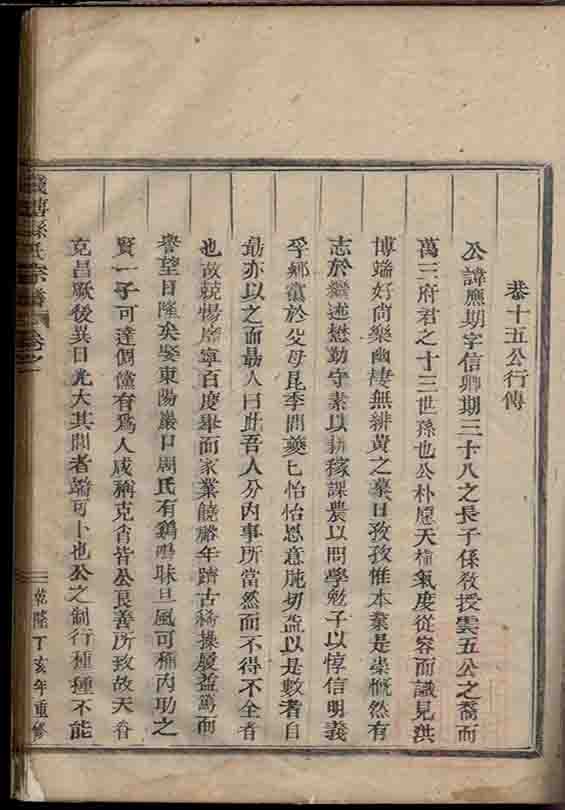 恭十五公行傳
公諱應期字信卿期三十八之長子係教授雲五公之裔而
萬三府君之十三世孫也公朴愿天植氣度從容而識見洪
博端好尚樂幽棲無緋黃之慕日孜孜惟本業是崇慨然有
志於繼述懋勤守素以耕稼課農以問學勉子以惇信明義
孚鄉黨於父母昆季間夔匕怡怡恩意施切盖以是數者自
勗亦以之而勗人曰此吾人分內事所當然而不得不全者
也故兢惕靡寧百度舉而家業饒裕年躋古稀操履益篤而
譽望日隆矣娶東陽巖口周氏有鷄鳴昧旦風可稱內助之
賢一子可達倜儻有爲人咸稱克肖皆公良善所致故天眷
克昌厥後異日光大其閭者端可卜也公之制行種種不能
孫氏宗譜 卷之一
乾隆丁亥年重修